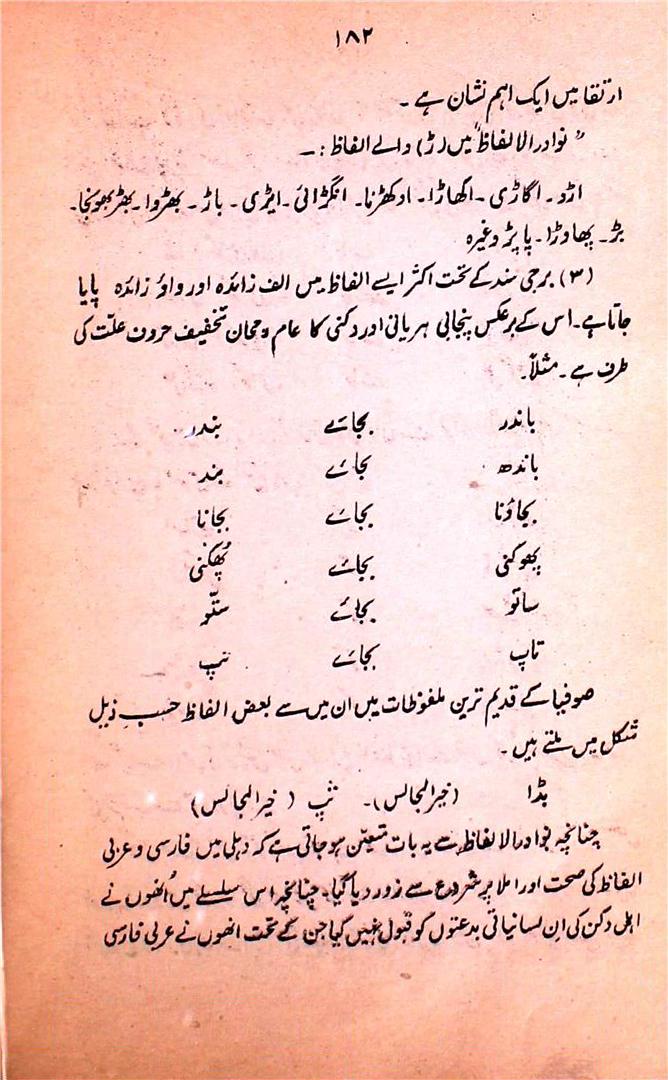 ۱۸۲
ارتقا میں ایک اہم نشان ہے۔
"نوادر الالفاظ" میں (ڑ) والے الفاظ :۔
اڑد۔ اگاڑی۔ اکھاڑا۔ اوکھڑنا۔ انگڑائی۔ ایڑی۔ باڑ۔ بھڑوا۔ بھڑبھونجا۔
بڑ۔ پھاوڑا۔ پاپڑ وغیرہ
(۳) برجی سند کے تحت اکثر ایسے الفاظ میں الف زائدہ اور واؤ زائدہ پایا
جاتا ہے۔ اس کے برعکس پنجابی ہریانی اور دکنی کا عام رجحان تخفیف حروف علت کی
طرف ہے۔ مثلاً۔
باندر بجائے بندر
باندھ بجائے بند
بجاؤنا بجائے بجانا
پھوکنی بجائے پُھکنی
ساتو بجائے ستّو
تاپ بجائے تپ
صوفیا کے قدیم ترین ملفوظات میں ان میں سے بعض الفاظ حسبِ ذیل
شکل میں ملتے ہیں۔
بڈا (خیر المجالس)۔ تپ (خیر المجالس)
چنانچہ نوادر الالفاظ سے یہ بات متعین ہو جاتی ہے کہ دہلی میں فارسی و عربی
الفاظ کی صحت اور املا پر شروع سے زور دیا گیا۔ چنانچہ اس سلسلے میں اُنھوں نے
اہل دکن کی اِن لسانیاتی بدعتوں کو قبول نہیں کیا جن کے تحت انھوں نے عربی فارسی